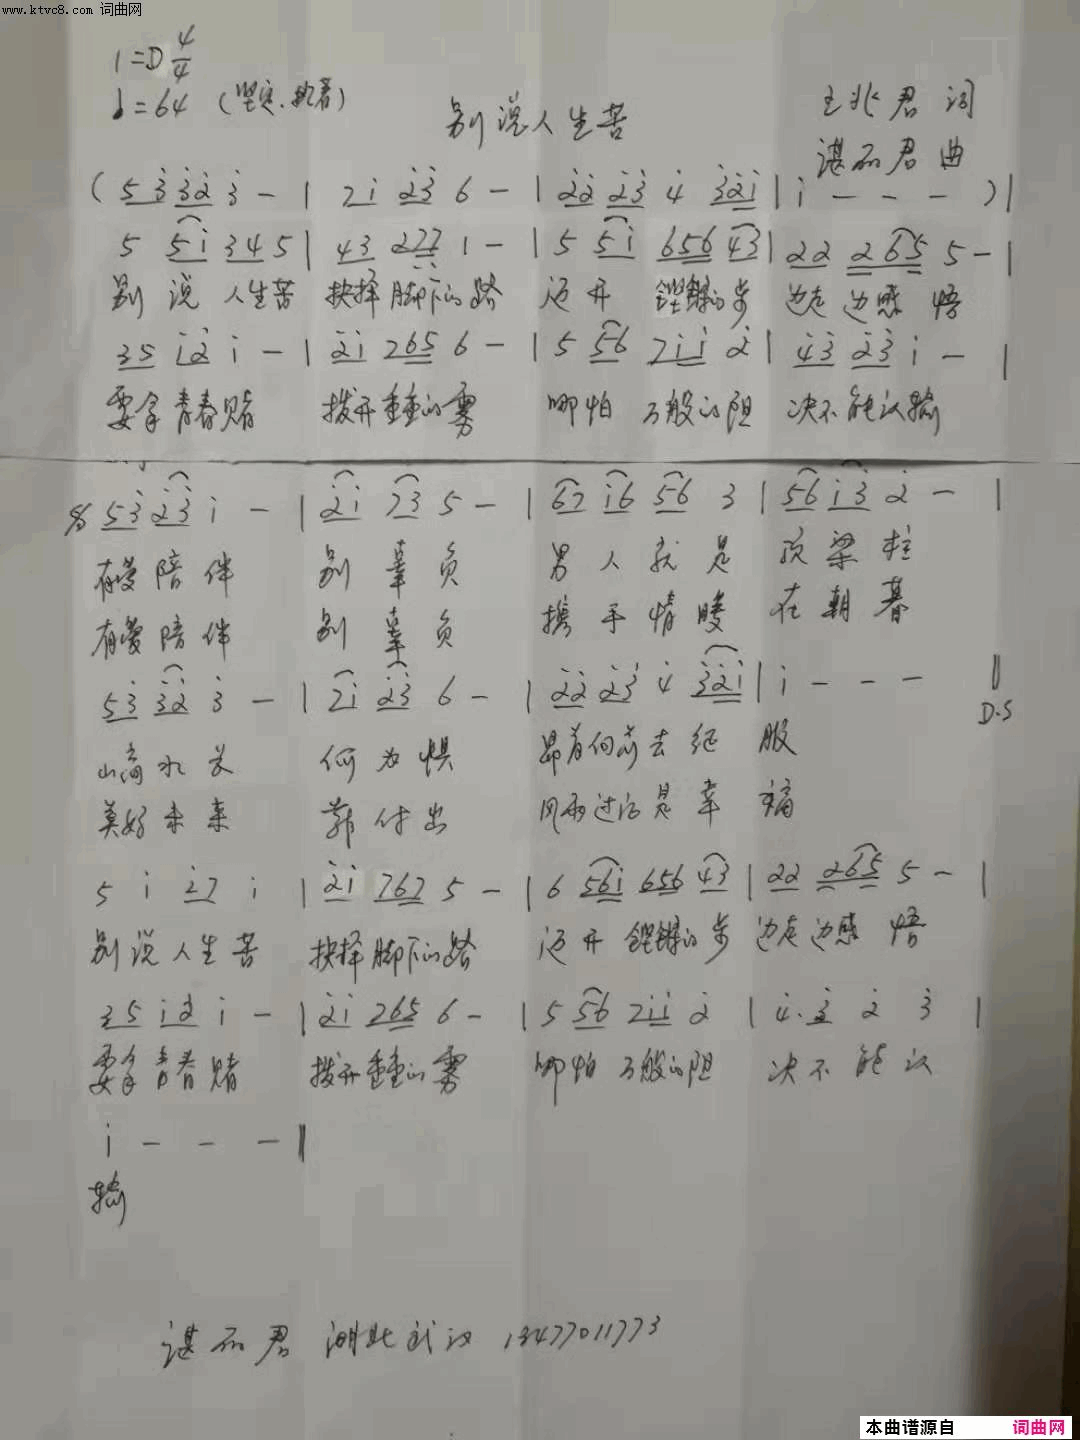 www.ktvc8.com 词曲网
1=D 4/4
♩=64 (坚定、执著)
别说人生苦
王兆君 词
谌丽君 曲
( 5 3 3 2 3 - | 2 1 2 3 6 - | 2 2 2 3 4 3 2 1 | 1 - - - ) |
5 5 1 3 4 5 | 4 3 2 7 7 1 - | 5 5 1 6 5 6 4 3 | 2 2 2 6 5 5 - |
别说人生苦 抉择脚下的路 迈开铿锵的步 边走边感悟
3 5 1 2 1 - | 2 1 2 6 5 6 - | 5 5 6 7 1 1 2 | 4 3 2 3 1 - |
要拿青春赌 拨开重重的雾 哪怕万般的阻 决不能认输
5 3 2 3 1 - | 2 1 7 3 5 - | 6 7 1 6 5 6 3 | 5 6 1 3 2 - |
有爱陪伴 别辜负 男人就是顶梁柱
有爱陪伴 别辜负 携手情暖在朝暮
5 3 3 2 3 - | 7 1 2 3 6 - | 2 2 2 3 4 3 2 1 | 1 - - - ‖
D.S
山高水长 何为惧 昂首向前去征服
美好未来 靠付出 风雨过后是幸福
5 1 2 7 1 | 2 1 7 6 7 5 - | 6 5 6 1 6 5 6 4 3 | 2 2 2 6 5 5 - |
别说人生苦 抉择脚下的路 迈开铿锵的步 边走边感悟
3 5 1 2 1 - | 2 1 2 6 5 6 - | 5 5 6 7 1 1 2 | 4. 3 2 3 |
要拿青春赌 拨开重重的雾 哪怕万般的阻 决不能认
1 - - - ‖
输
谌丽君 湖北武汉 13477011773
本曲谱源自 词曲网